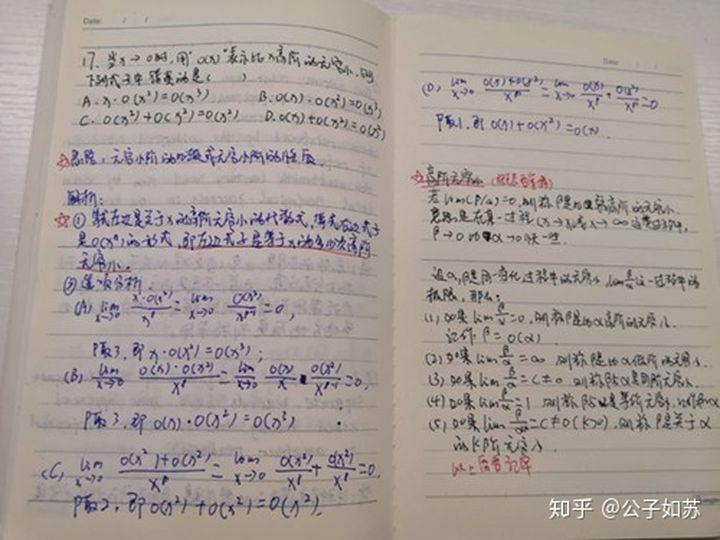 Date: / /
17. 当x→0时,用"o(x)"表示比x高阶的无穷小,则
下列式子中错误的是( )
A. x·o(x²)=o(x³) B. o(x)·o(x²)=o(x³)
C. o(x²)+o(x²)=o(x²) D. o(x)+o(x²)=o(x²)
思路:无穷小阶的
解析:
① 等式左边是关于x的高阶无穷小的代数式,等式右边式子
是o(xⁿ)的形式,即左边式子是等于x的多少次高阶
无穷小。
② 选项分析.
(A) lim x→0 x·o(x²)/xᵏ = lim x→0 o(x²)/xᵏ⁻¹ = 0,
P取3,即x·o(x²)=o(x³);
(B) lim x→0 o(x)·o(x²)/xᵖ = lim x→0 o(x)/x · o(x²)/xᵖ⁻¹ = 0,
P取3,即o(x)·o(x²)=o(x³)
(C) lim x→0 o(x²)+o(x²)/xᵖ = lim x→0 o(x²)/xᵖ + o(x²)/xᵖ = 0
P取2,即o(x²)+o(x²)=o(x²).
Date: / /
(D) lim x→0 o(x)+o(x²)/xᵖ = lim x→0 o(x)/xᵖ + o(x²)/xᵖ = 0
P取1,即o(x)+o(x²)=o(x).
高阶无穷小
若lim(β/α)=0,则称β是比α较高阶的无穷小.
意思是在某一过程(x→x₀或x→∞这类过程)中,
β→0比α→0快一些.
设α,β是同一变化过程中的无穷小,lim β/α 这一过程中的
极限,那么:
(1) 如果lim β/α=0,则称β是比α高阶的无穷小.
记作β=o(α)
(2) 如果lim β/α=∞,则称β是比α低阶的无穷小.
(3) 如果lim β/α=C≠0,则称β与α是同阶无穷小.
(4) 如果lim β/α=1,则称β与α是等价无穷小,
(5) 如果lim β/αᵏ=C≠0(k>0),则称β是关于α
的k阶无穷小
以上
知乎 @公子如苏